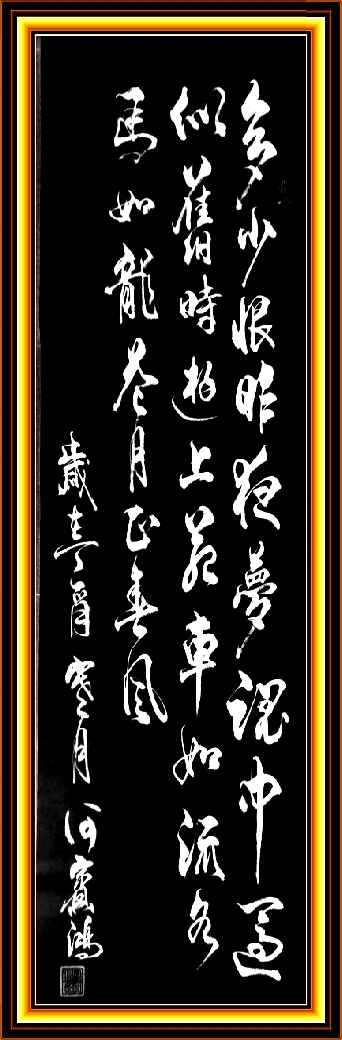 多少恨昨夜夢魂中還
似舊時遊上苑車如流水
馬如龍花月正春風
歲寒月何賓鴻